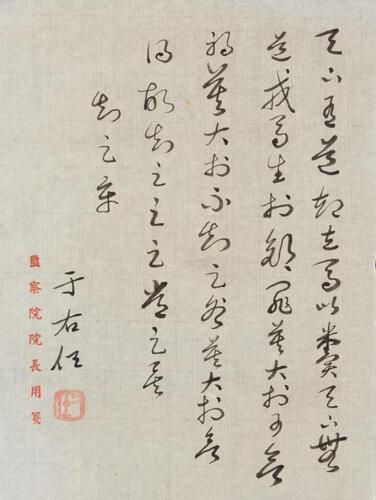 天下有道却走馬以糞天下無
道戎馬生於郊罪莫大於可欲
禍莫大於不知足咎莫大於欲
得故知足之足常足矣
知足章
于右任
監察院院長用箋